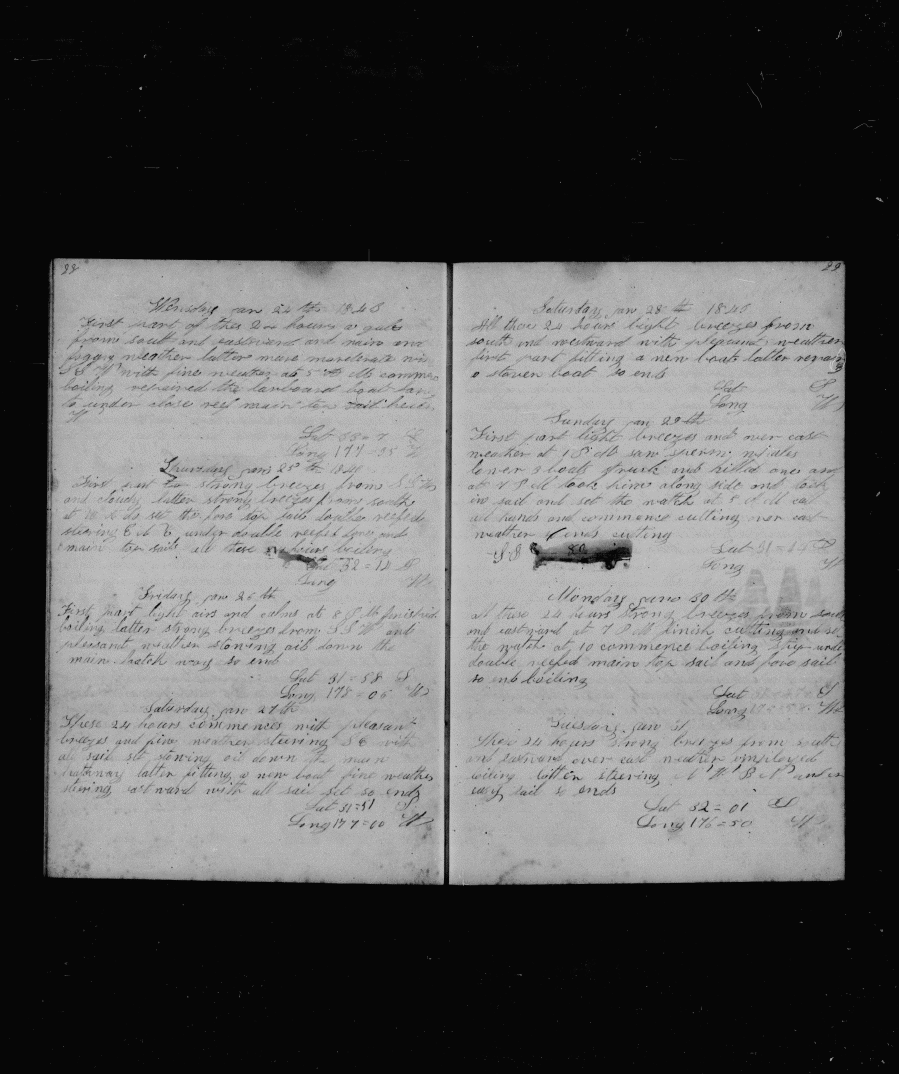 22
Wensday jan 24 th 1846
First part of thes 24 hours a gale
from south and eastward and rain and
foggy weather latter more moderate
with fine weather at 5 commence
boiling repaired the larboard boat
to under close reef main top sail
W
Lat S
Long 177 = 55 W
Thursday jan 25 th 1846
First part strong breezes from
and cloudy latter strong breezes from south
at set the fore top sail double reefed
steering under double reefed fore and
main top sails all these hours boiling
Lat 32 = 14 S
Long W
Friday jan 26 th
First part light airs and calms at 8 P M finished
boiling latter strong breezes from S S W and
pleasant weather stowing oil down the
main hatch way so ends
Lat 31 = 58 S
Long 178 = 06 W
Saturday jan 27 th
These 24 hours commences with pleasant
breezes and fine weather steering S E with
all sail set stowing oil down the main
hatchway latter fitting a new boat fine weather
steering eastward with all sail set so ends
Lat 31=51 S
Long 177=00 W
22
Saturday jan 28 th 1846
All these 24 hours light breezes from
south and westward with pleasant weather
first part fitting a new boat latter
a stoven boat so ends
Lat S
Long W
Sunday jan 29 th
First part light breezes and over cast
weather at 1 P M saw sperm whales
lower 3 boats struck and killed one and
at P M took him along side and took
in sail and set the watch at
all hands and commence cutting over cast
weather ends cutting
80
Lat 31=14 S
Long W
Monday jan 30 th
all these 24 hours strong breezes from south
and eastward at 7 P M finish cutting and set
the watch at 10 commence boiling ship under
double reefed main top sail and fore sail
so ends boiling
Lat S
Long W
Tuesday jan 31
These 24 hours strong breezes from south
and eastward over cast weather employed
boiling latter steering
easy sail so ends
Lat 32=01 S
Long 176=50 W